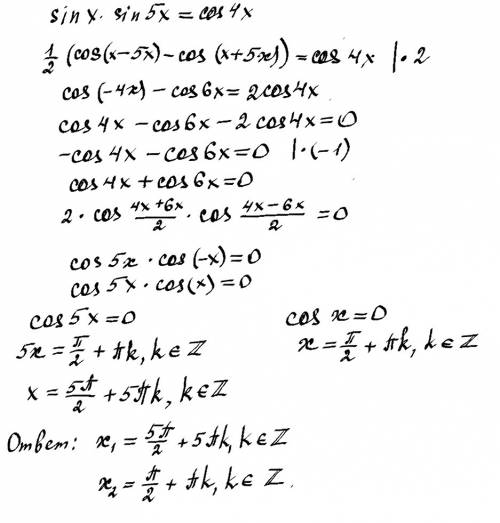 sin x · sin 5x = cos 4x
1/2 (cos(x-5x) - cos (x+5x)) = cos 4x | · 2
cos (-4x) - cos 6x = 2cos 4x
cos 4x - cos 6x - 2 cos 4x = 0
-cos 4x - cos 6x = 0 | · (-1)
cos 4x + cos 6x = 0
2 · cos (4x+6x)/2 · cos (4x-6x)/2 = 0
cos 5x · cos (-x) = 0
cos 5x · cos(x) = 0
cos 5x = 0
5x = π/2 + πk, k ∈ ℤ
x = 5π/2 + 5πk, k ∈ ℤ
cos x = 0
x = π/2 + πk, k ∈ ℤ
Ответ: x₁ = 5π/2 + 5πk, k ∈ ℤ
x₂ = π/2 + πk, k ∈ ℤ.